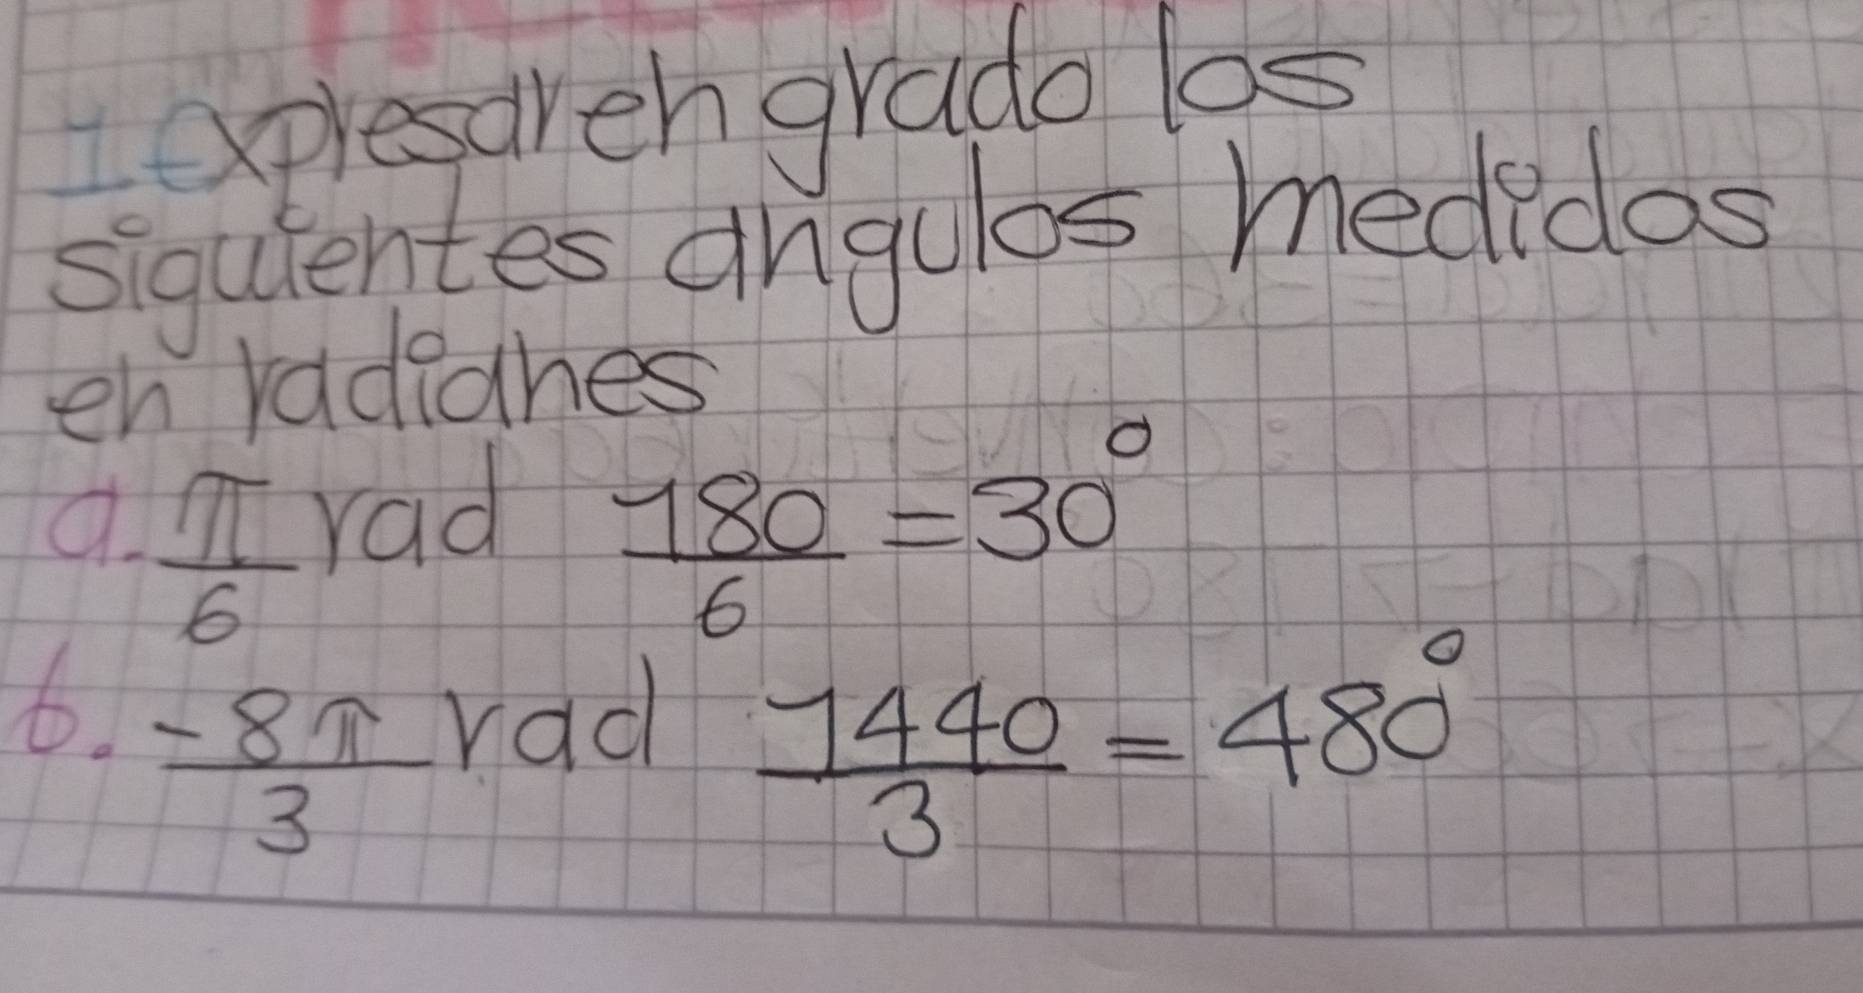 1 Expresar en grado los
siguientes angulos medidos
en radianes
a. π/6 rad 180/6 = 30°
b. -8π/3 rad 1440/3 = 480°